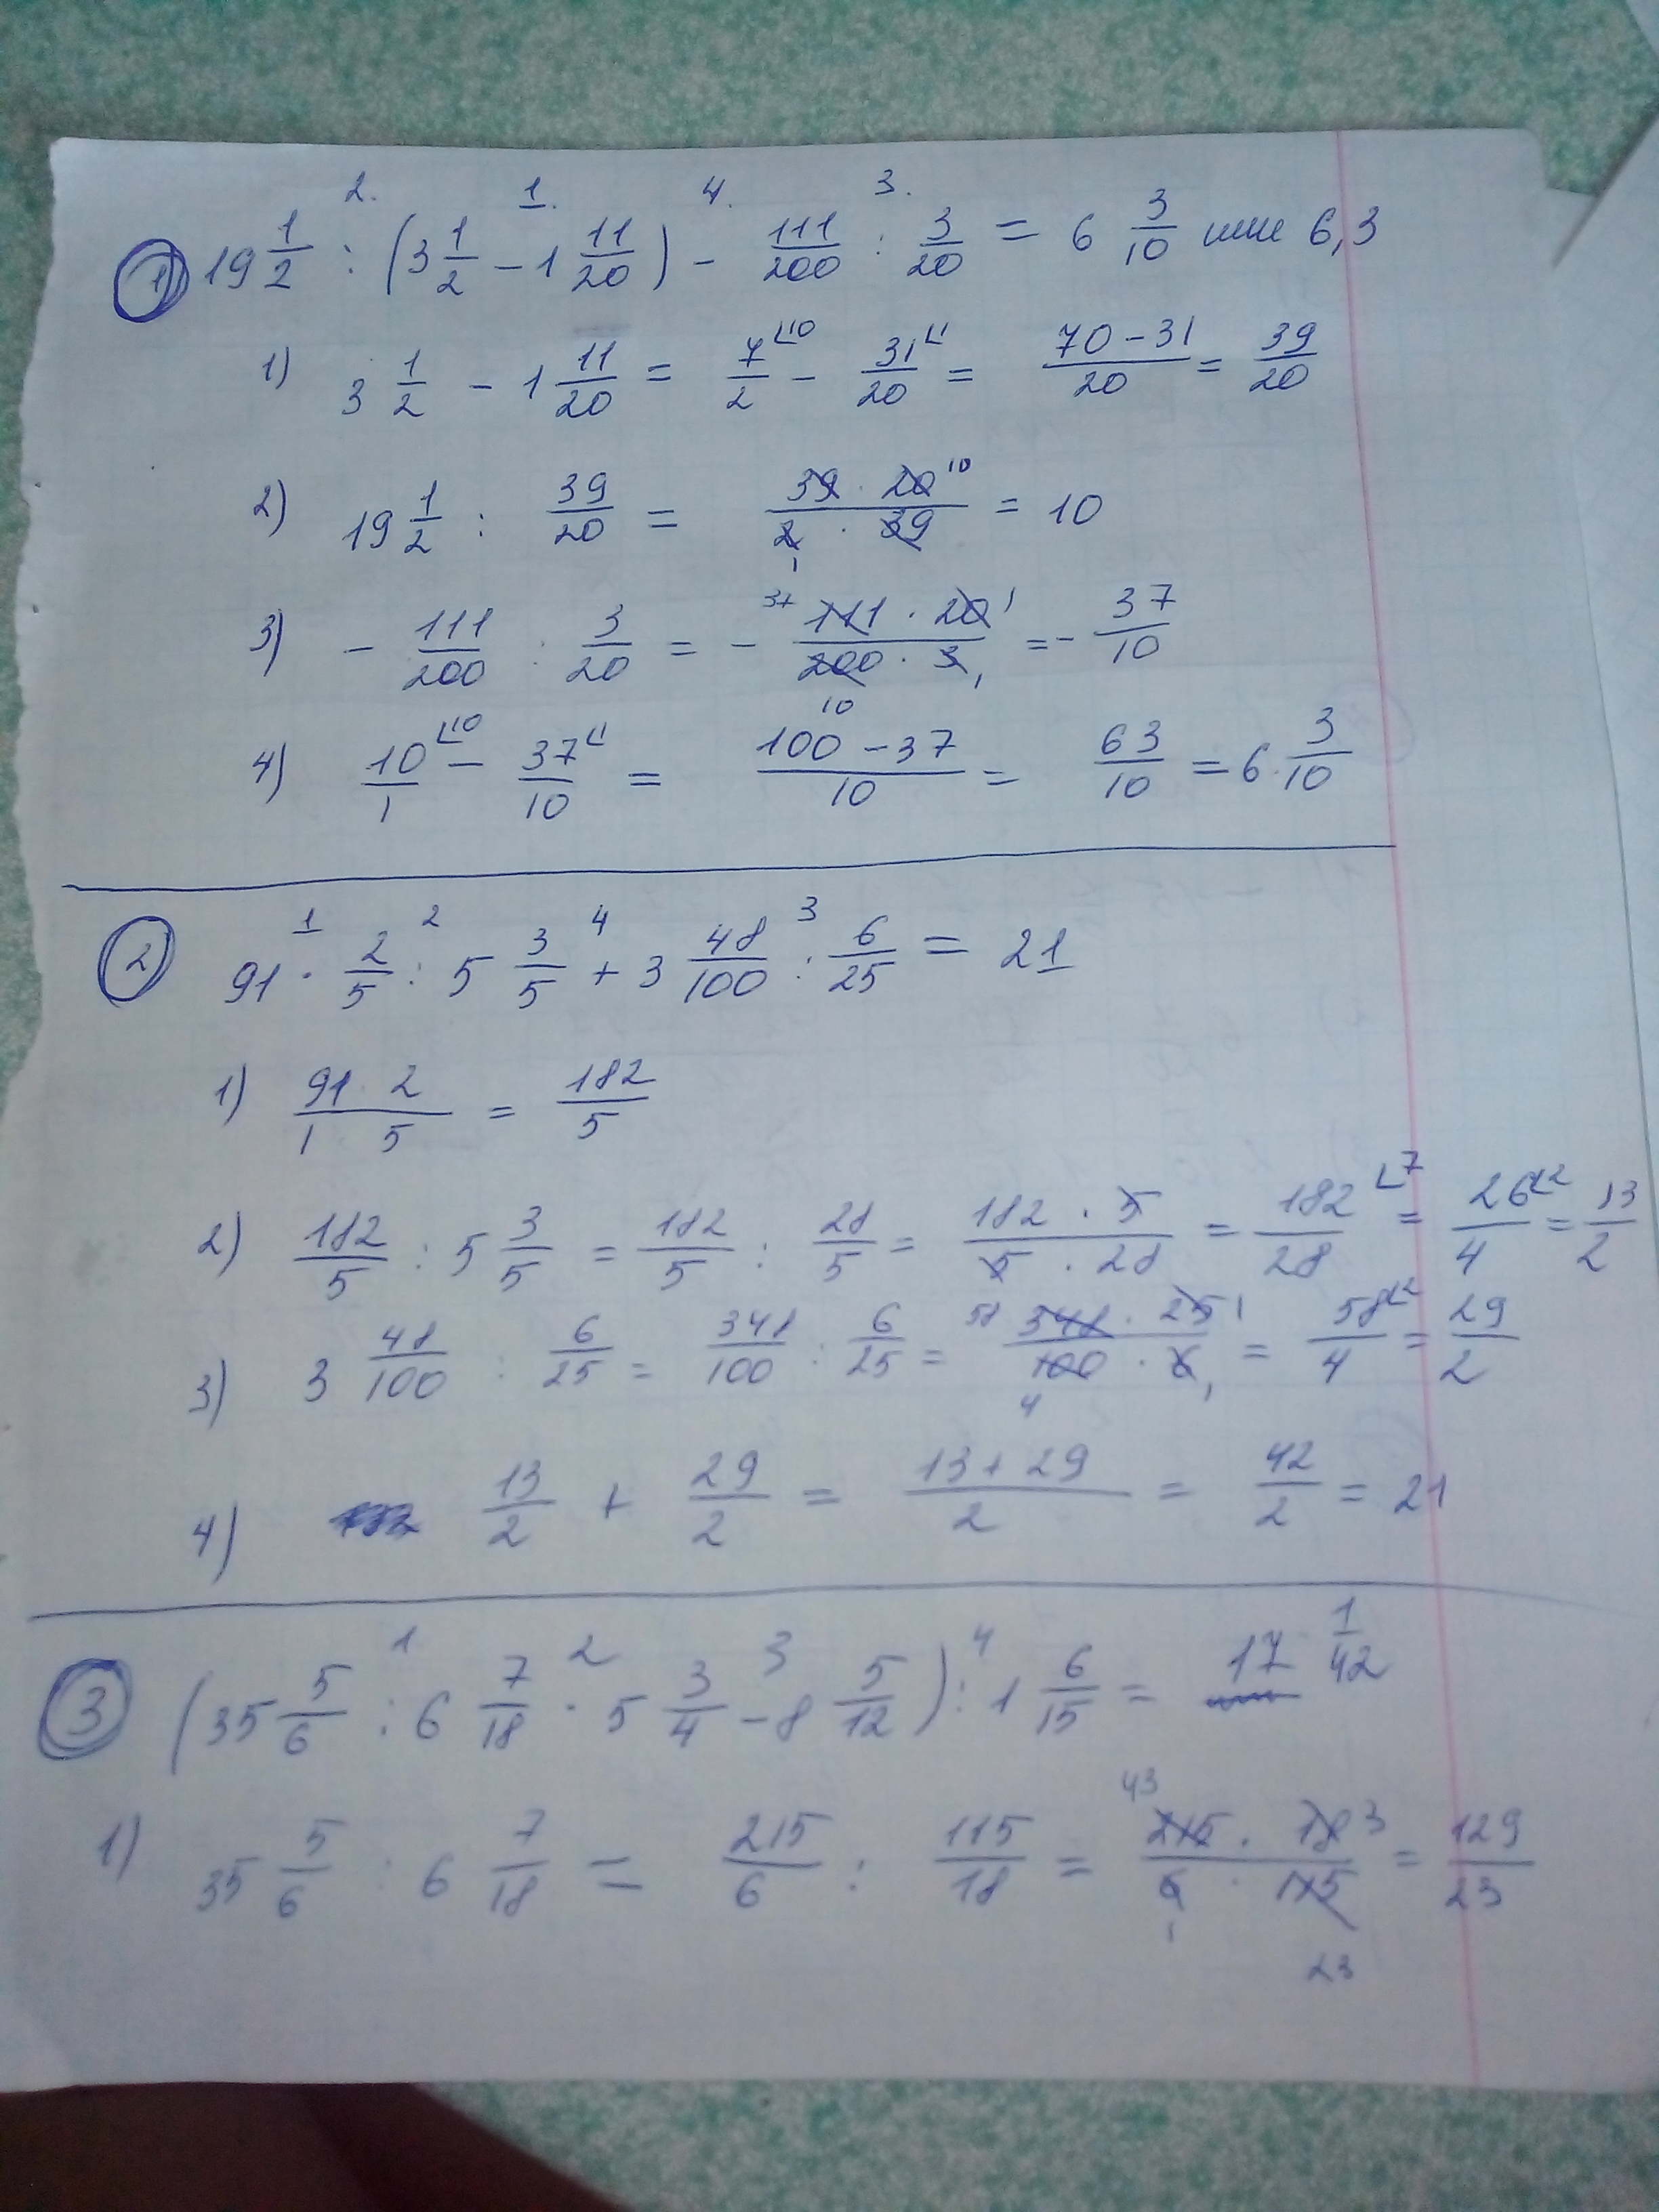 2. 1. 4. 3.
1) 19 1/2 : (3 1/2 - 1 11/20) - 111/200 : 3/20 = 6 3/10 или 6,3
1) 3 1/2 - 1 11/20 = 7/2 ∟10 - 31/20 ∟1 = (70 - 31)/20 = 39/20
2) 19 1/2 : 39/20 = (39 · 20 10)/(2 1 · 39) = 10
3) - 111/200 : 3/20 = - (37 111 · 20 1)/(200 10 · 3 1) = - 37/10
4) 10/1 ∟10 - 37/10 ∟1 = (100 - 37)/10 = 63/10 = 6 3/10
1 2 4 3
2) 91 · 2/5 : 5 3/5 + 3 48/100 : 6/25 = 21
1) (91 · 2)/(1 5) = 182/5
2) 182/5 : 5 3/5 = 182/5 : 28/5 = (182 · 5)/(5 · 28) = 182/28 ∟7 = 26/4 ∟2 = 13/2
3) 3 48/100 : 6/25 = 348/100 : 6/25 = (58 348 · 25 1)/(100 4 · 6 1) = 58/4 ∟2 = 29/2
4) 13/2 + 29/2 = (13 + 29)/2 = 42/2 = 21
1 2 3 4
3) (35 5/6 : 6 7/18 · 5 3/4 - 8 5/12) : 1 6/15 = 17 1/42
1) 35 5/6 : 6 7/18 = 215/6 : 115/18 = (43 215 · 18 3)/(6 1 · 115 23) = 129/23